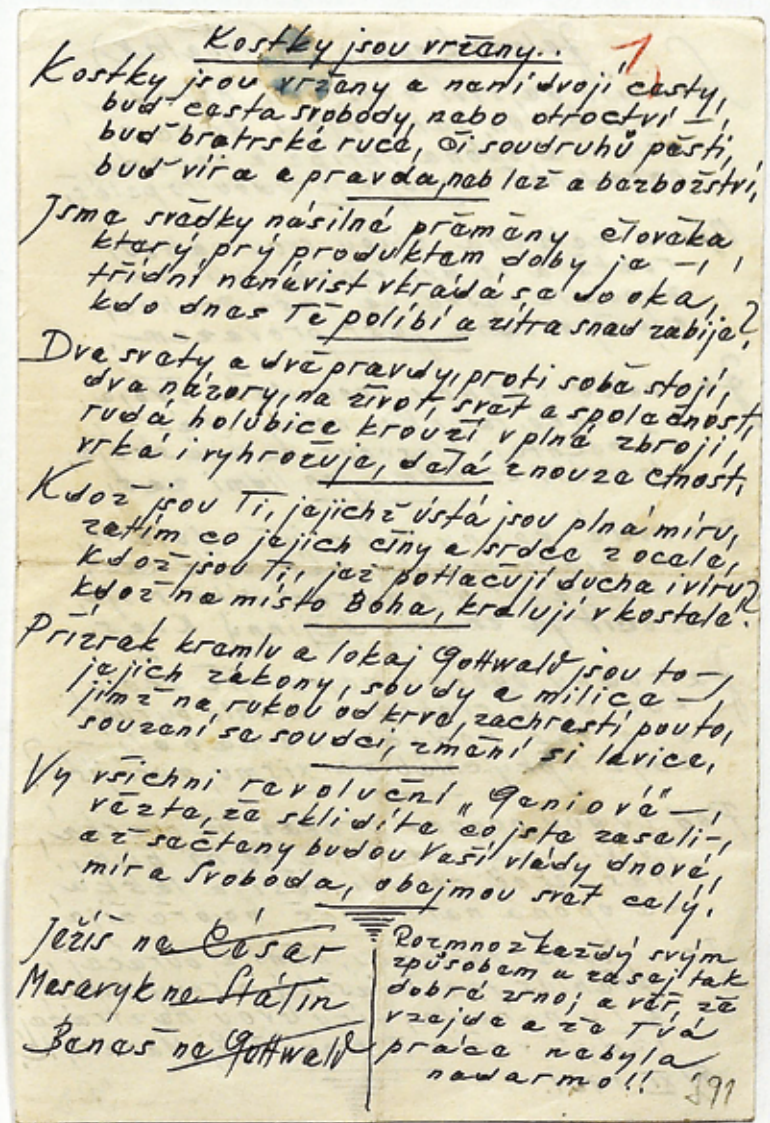 Kostky jsou vrženy..
1)
Kostky jsou vrženy a není dvojí cesty,
buď cesta svobody, nebo otroctví –,
buď bratrské ruce, či soudruhů pěsti,
buď víra a pravda, neb lež a bezbožství,
Jsme svědky násilné přeměny člověka
který, prý produktem doby je –,
třídní nenávist vkrádá se do oka,
kdo dnes Tě políbí a zítra snad zabije?
Dva světy a dvě pravdy, proti sobě stojí,
dva názory, na život, svět a společnost,
rudá holubice krouží v plné zbroji,
vrká i vyhrožuje, dělá z nouze ctnost,
Kdož jsou Ti, jejichž ústa jsou plná míru,
zatím co jejich činy a srdce z ocele,
kdož jsou Ti, jež potlačují ducha i víru?
kdož na místo Boha, kralují v kostele?
Přízrak kremlu a lokaj Gottwald jsou to –,
jejich zákony, soudy a milice –,
jimž na rukou od krve, zachrastí pouto,
souzení se soudci, změní si lavice,
Vy všichni revoluční „Geniové" –,
vězte, že sklidíte co jste zaseli –,
až sečteny budou Vaší vlády dnové,
mír a Svoboda, obejmou svět celý.
Ježíš ne César
Masaryk ne Stálin
Beneš ne Gottwald
Rozmnož každý svým
způsobem a zasej tak
dobré zrno; a věř, že
vzejde a že Tvá
práce nebyla
nadarmo!!
391